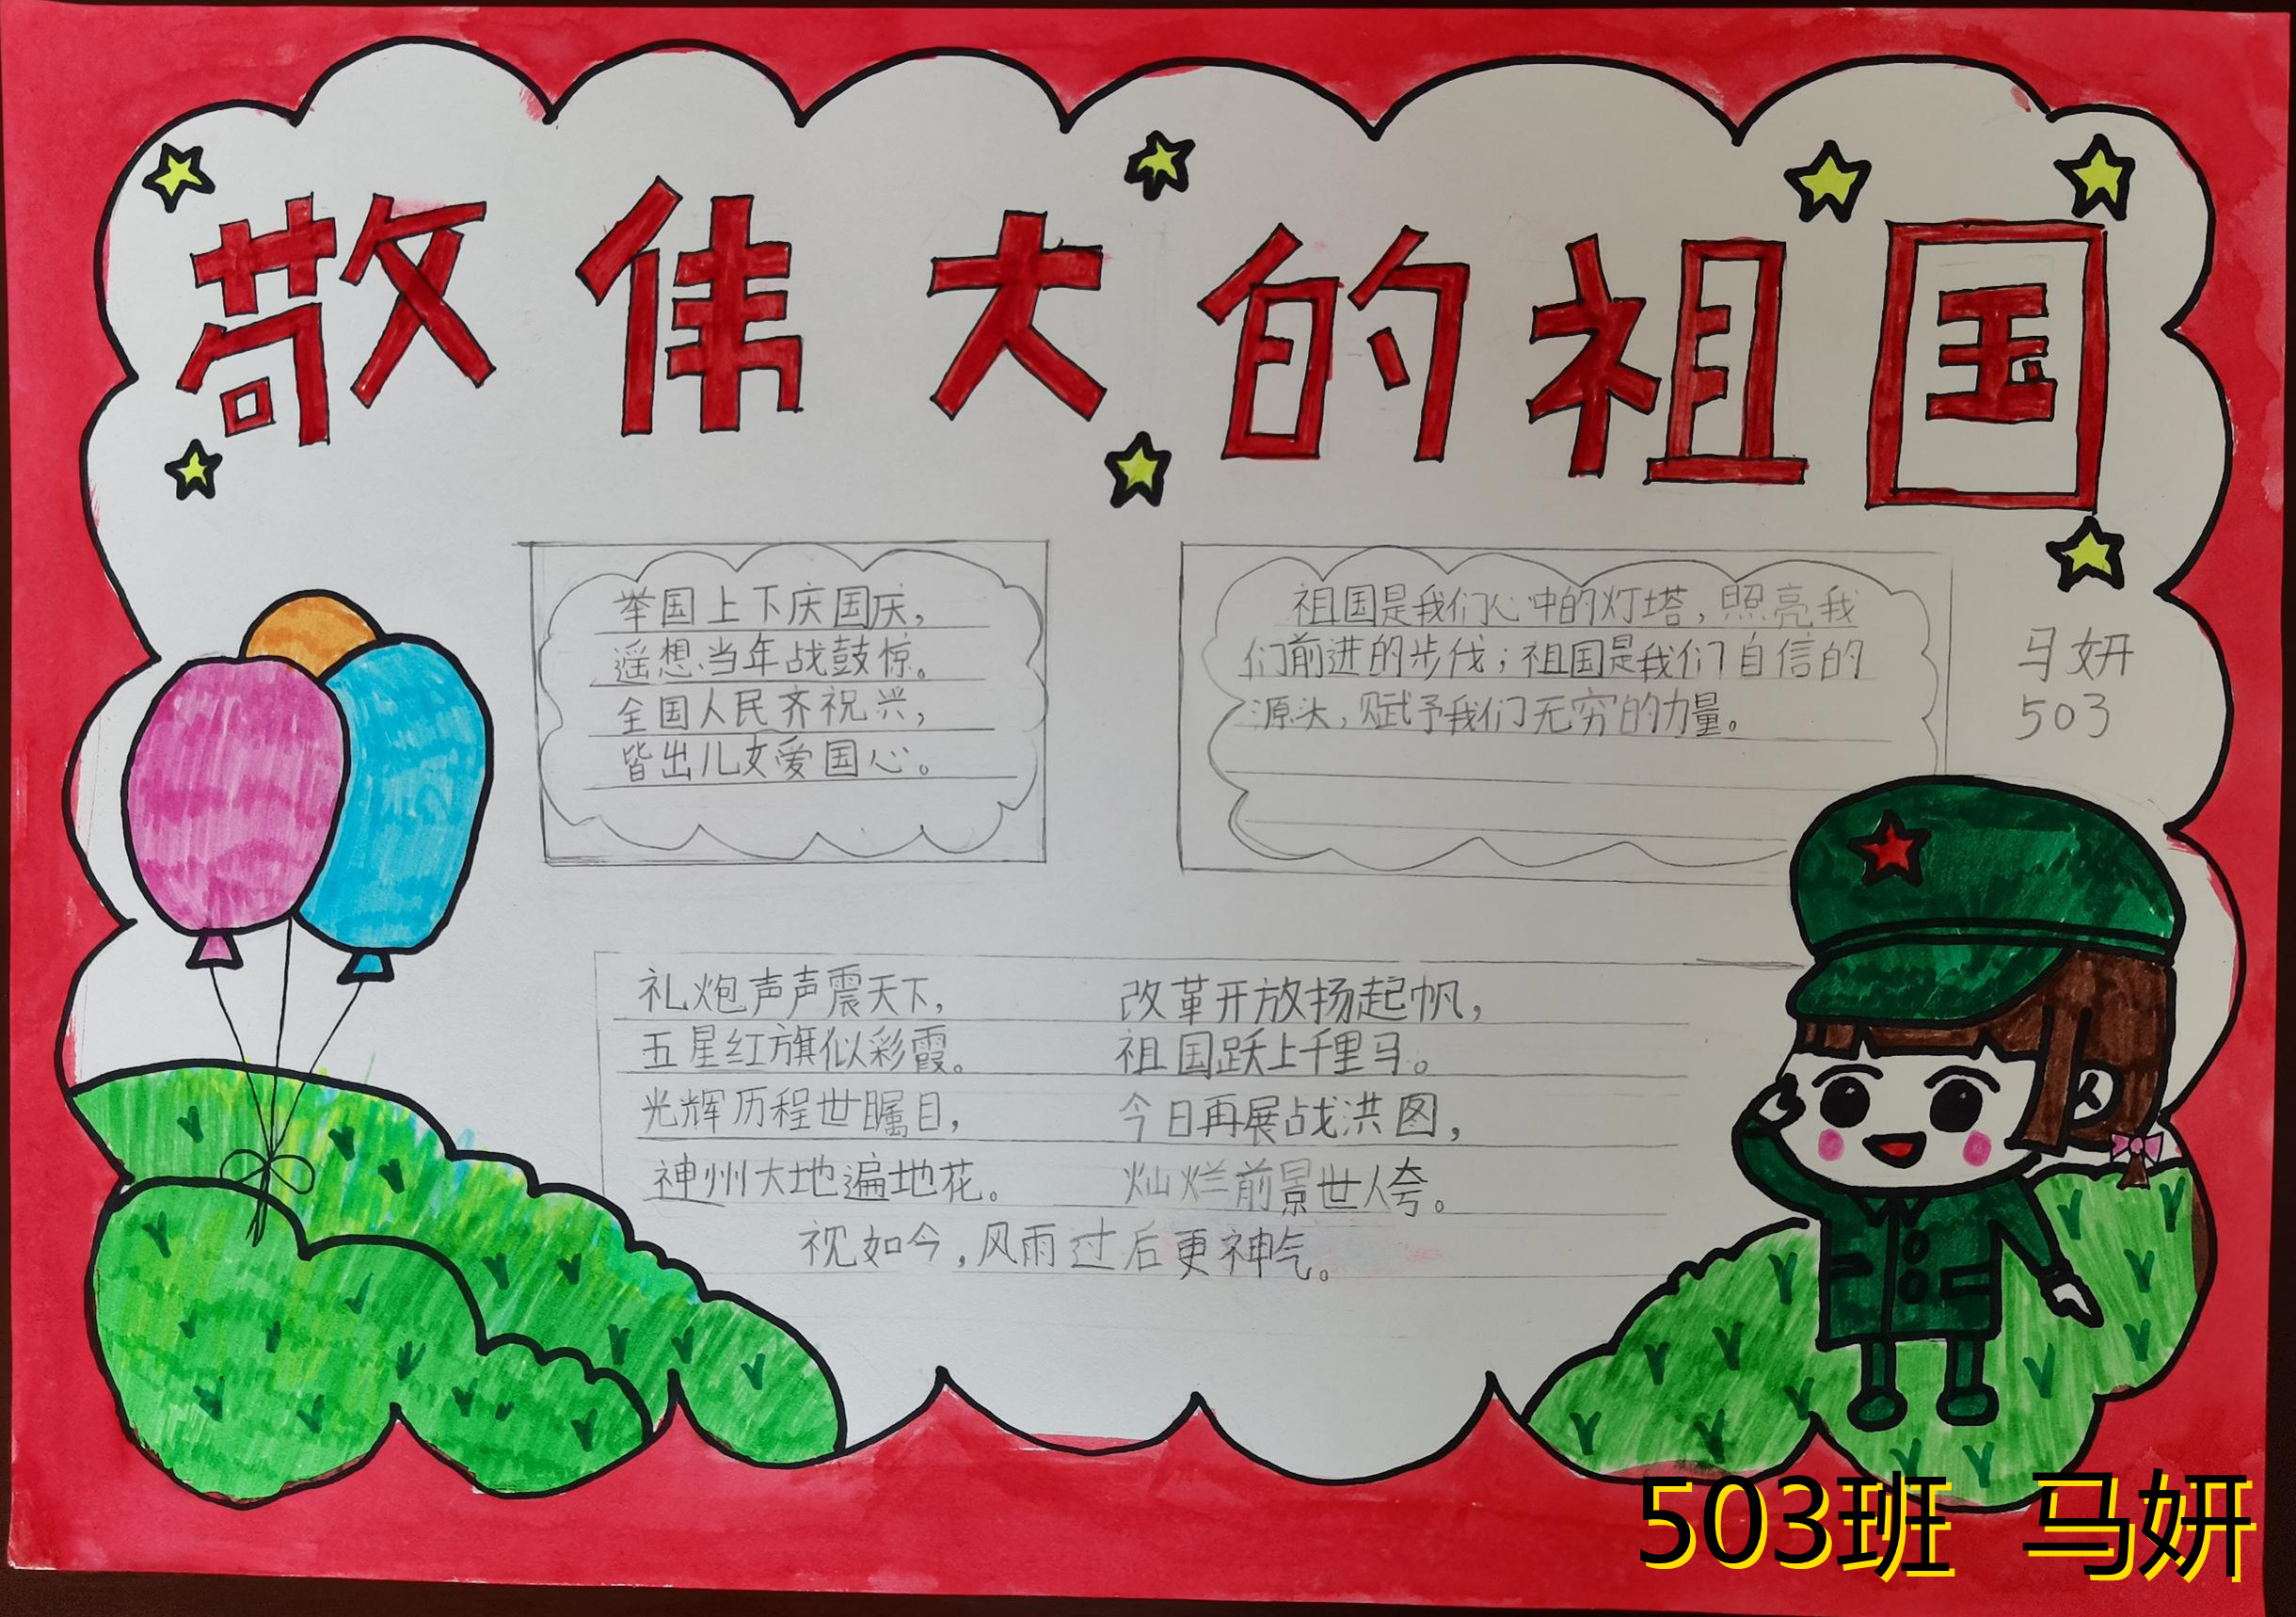 敬伟大的祖国
举国上下庆国庆，
遥想当年战鼓惊。
全国人民齐祝兴，
皆出儿女爱国心。
祖国是我们心中的灯塔，照亮我
们前进的步伐；祖国是我们自信的
源头，赋予我们无穷的力量。
马妍
503
礼炮声声震天下，
五星红旗似彩霞。
光辉历程世瞩目，
神州大地遍地花。
改革开放扬起帆，
祖国跃上千里马。
今日再展战洪图，
灿烂前景世人夸。
视如今，风雨过后更神气。
503班 马妍